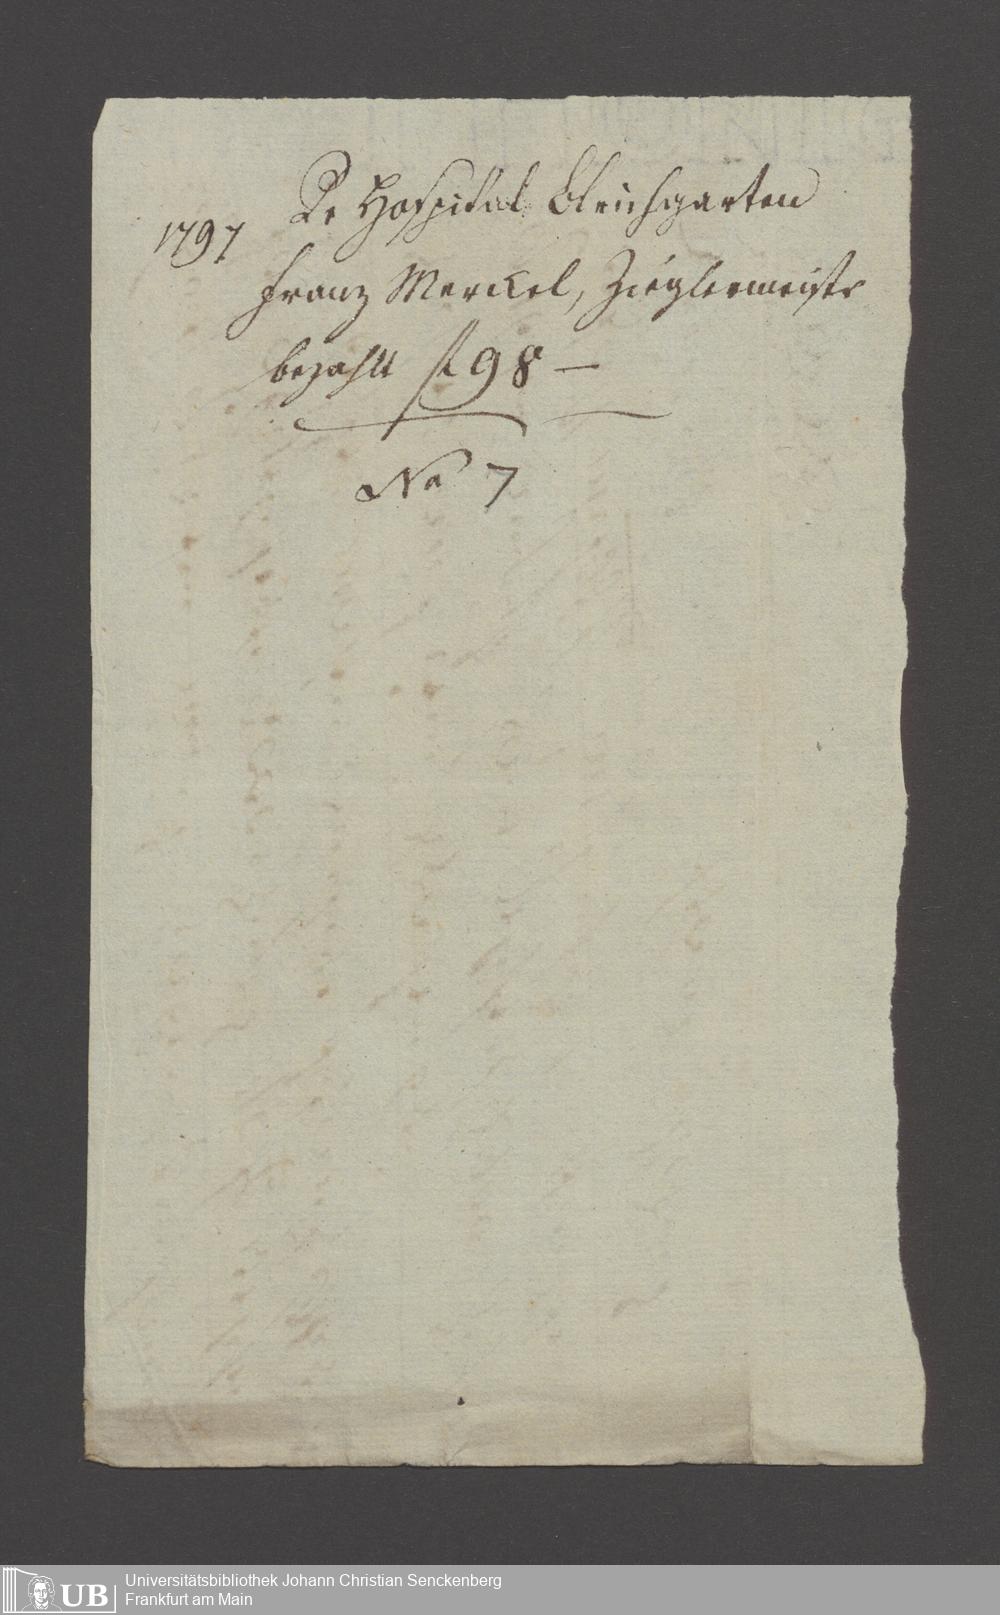 De Hospital Bleichgarten
1797
Franz Merckel, Zieglermeister
bezahlt fl 98 —
No 7
UB
Universitätsbibliothek Johann Christian Senckenberg
Frankfurt am Main